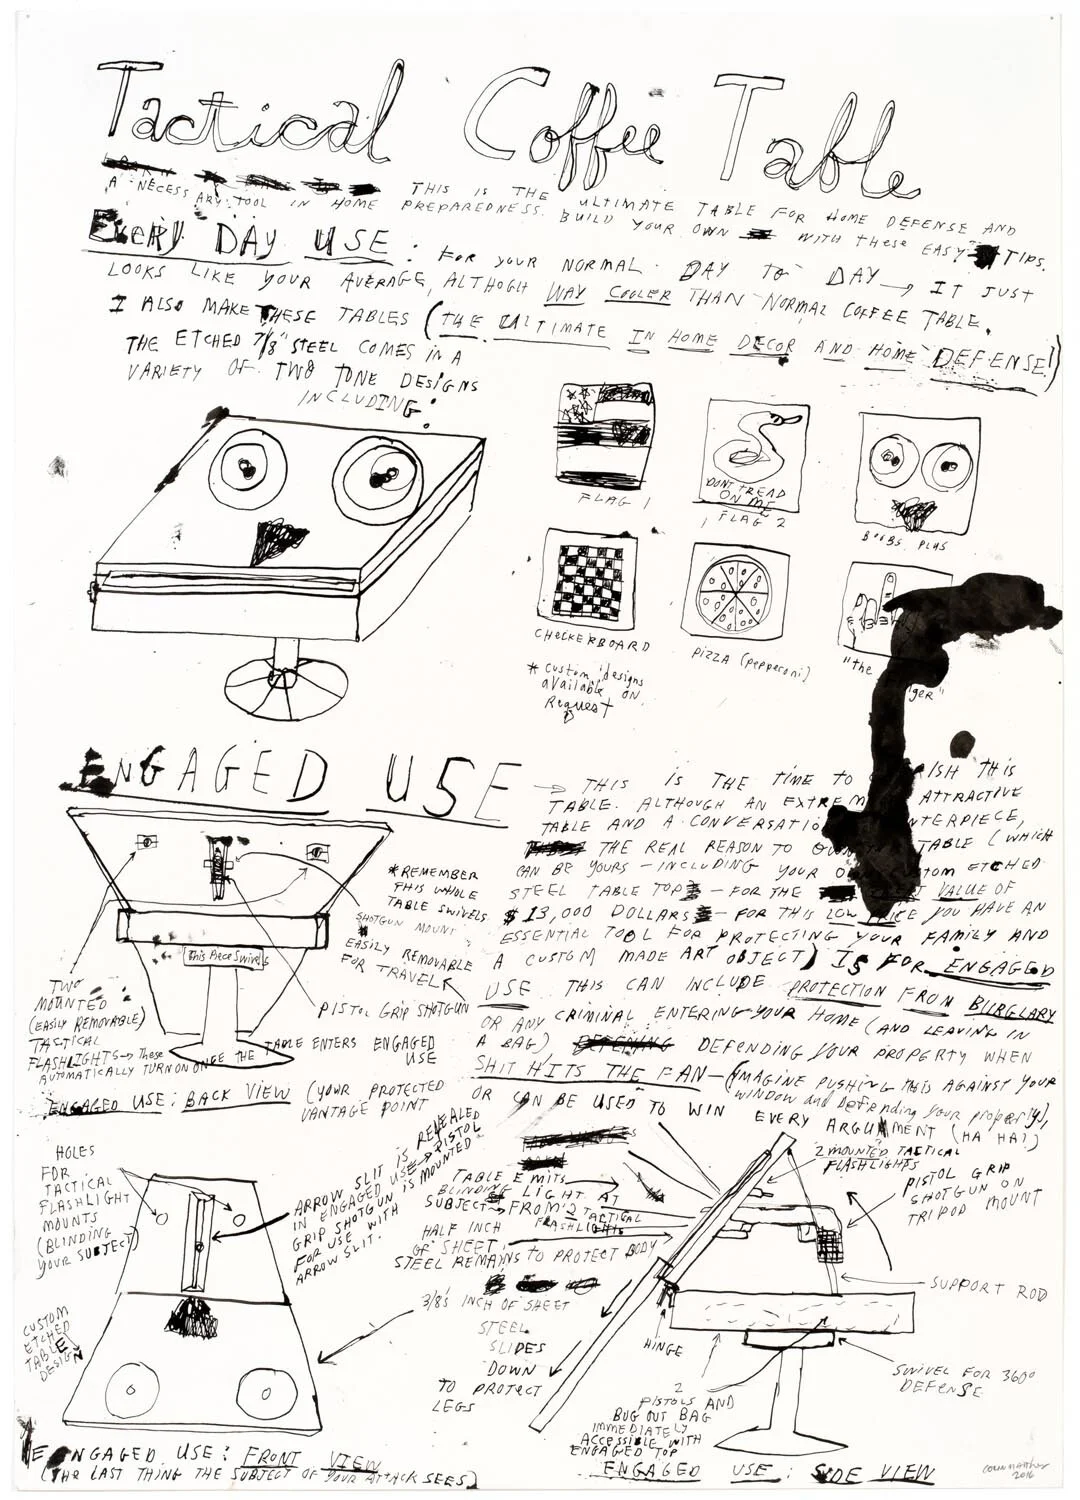 Tactical Coffee Table
THIS IS THE ULTIMATE TABLE FOR HOME DEFENSE AND
A NECESSARY TOOL IN HOME PREPAREDNESS. BUILD YOUR OWN WITH THESE EASY TIPS.
EVERY DAY USE: FOR YOUR NORMAL DAY TO DAY → IT JUST
LOOKS LIKE YOUR AVERAGE, ALTHOGH WAY COOLER THAN NORMAL COFFEE TABLE.
I ALSO MAKE THESE TABLES (THE ULTIMATE IN HOME DECOR AND HOME DEFENSE!)
THE ETCHED 7/8" STEEL COMES IN A
VARIETY OF TWO TONE DESIGNS
INCLUDING:
FLAG 1
DONT TREAD
ON ME
FLAG 2
B**BS PLUS
CHECKERBOARD
PIZZA (pepperoni)
"the ger"
* custom designs
available on
Request
ENGAGED USE
→ THIS IS THE TIME TO ISH THIS
TABLE. ALTHOUGH AN EXTREM ATTRACTIVE
TABLE AND A CONVERSATIO NTERPIECE,
THE REAL REASON TO OWN TABLE (WHICH
CAN BE YOURS - INCLUDING YOUR O TOM ETCHED
STEEL TABLE TOP - FOR THE VALUE OF
$13,000 DOLLARS - FOR THIS LOW PRICE YOU HAVE AN
ESSENTIAL TOOL FOR PROTECTING YOUR FAMILY AND
A CUSTOM MADE ART OBJECT) IS FOR ENGAGED
USE THIS CAN INCLUDE PROTECTION FROM BURGLARY
OR ANY CRIMINAL ENTERING YOUR HOME (AND LEAVING IN
A BAG) DEFENDING YOUR PROPERTY WHEN
SHIT HITS THE FAN - (IMAGINE PUSHING THIS AGAINST YOUR
WINDOW and Defending your property),
OR CAN BE USED TO WIN EVERY ARGUMENT (HA HA?)
*REMEMBER
THIS WHOLE
TABLE SWIVELS
SHOTGUN MOUNT
EASILY REMOVABLE
FOR TRAVEL
This Piece Swivels
PISTOL GRIP SHOTGUN
TWO
MOUNTED
(EASILY REMOVABLE)
TACTICAL
FLASHLIGHTS → These
AUTOMATICALLY TURN ON ONCE THE TABLE ENTERS ENGAGED
USE
ENGAGED USE: BACK VIEW (YOUR PROTECTED
VANTAGE POINT
HOLES
FOR
TACTICAL
FLASHLIGHT
MOUNTS
(BLINDING
YOUR SUBJECT)
ARROW SLIT IS REVEALED
IN ENGAGED USE → PISTOL
GRIP SHOTGUN IS MOUNTED
FOR USE WITH
ARROW SLIT.
CUSTOM
ETCHED
TABLE
DESIGN
ENGAGED USE: FRONT VIEW
(THE LAST THING THE SUBJECT OF YOUR ATTACK SEES)
TABLE EMITS
BLINDING LIGHT AT
SUBJECT → FROM 2 TACTICAL
FLASHLIGHTS
HALF INCH
OF SHEET
STEEL REMAINS TO PROTECT BODY
3/8'S INCH OF SHEET
STEEL
SLIDES
DOWN
TO PROTECT
LEGS
2 MOUNTED TACTICAL
FLASHLIGHTS
PISTOL GRIP
SHOTGUN ON
TRIPOD MOUNT
SUPPORT ROD
HINGE
SWIVEL FOR 360°
DEFENSE
2
PISTOLS AND
BUG OUT BAG
IMMEDIATELY
ACCESSIBLE WITH
ENGAGED TOP
ENGAGED USE: SIDE VIEW
2016